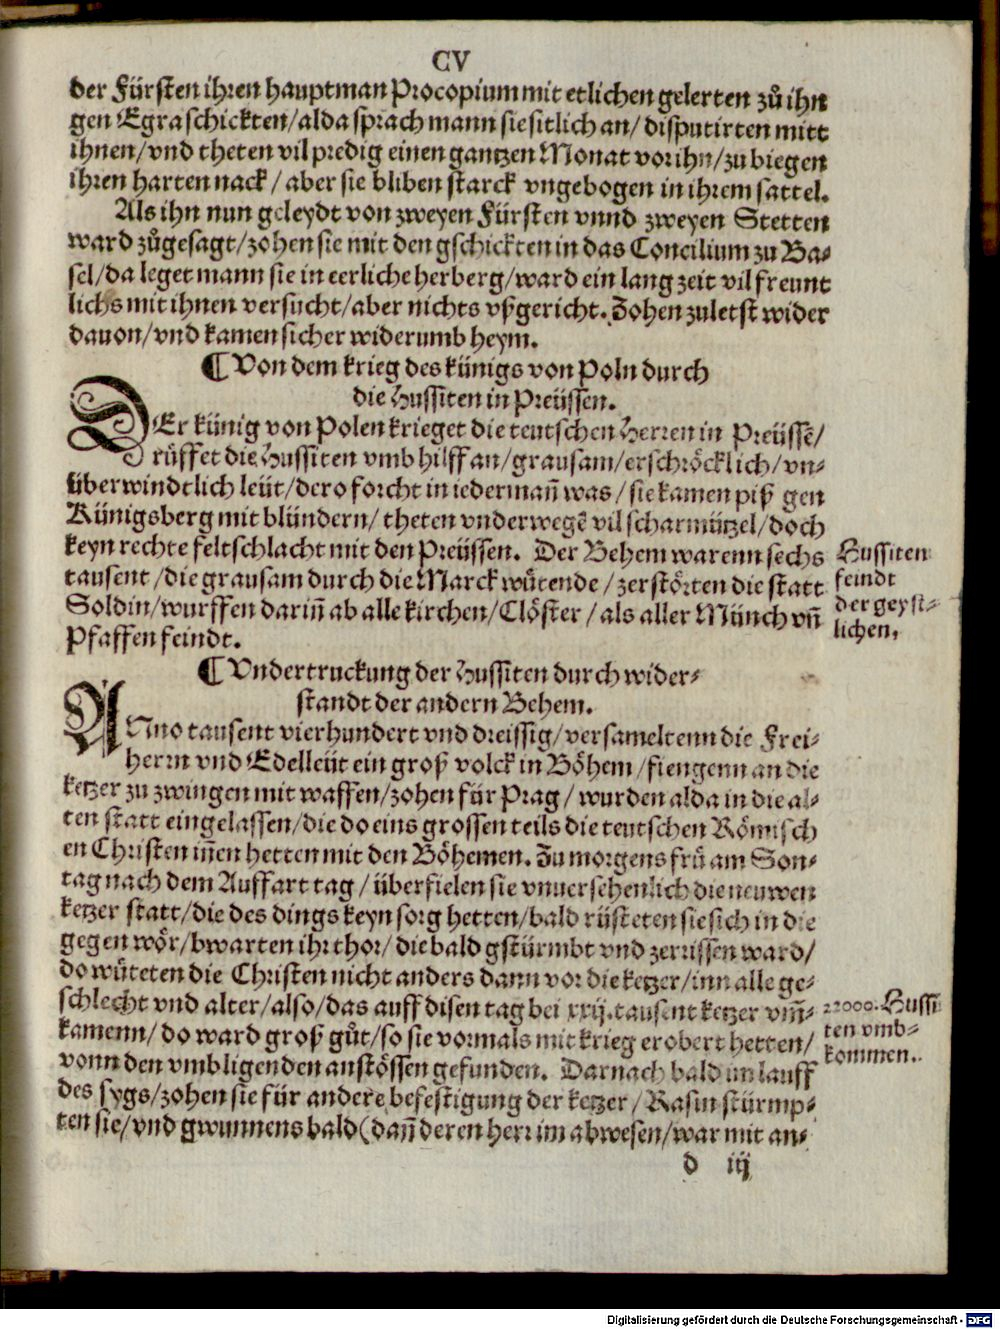 CV
der Fürsten ihren hauptman Procopium mit etlichen gelerten zů ihn
gen Egra schickten/alda sprach mann sie sitlich an/ disputirten mitt
ihnen/vnd theten vil predig einen gantzen Monat vor ihn/zu biegen
ihren harten nack/ aber sie bliben starck vngebogen in ihrem sattel.
Als ihn nun geleydt von zweyen Fürsten vnnd zweyen Stetten
ward zůgesagt/zohen sie mit den gschickten in das Concilium zu Ba-
sel/da leget mann sie in eerliche herberg/ward ein lang zeit vil freunt
lichs mit ihnen versucht/aber nichts vßgericht. Zohen zuletst wider
dauon/vnd kamen sicher widerumb heym.
¶ Von dem krieg des künigs von Poln durch
die Hussiten in Preüssen.
DEr künig von Polen krieget die teutschen Herren in Preüssẽ/
rüffet die Hussiten vmb hilff an/grausam/erschröcklich/vn-
überwindtlich leüt/dero forcht in iedermañ was/sie kamen piß gen
Künigsberg mit blündern/ theten vnderwegẽ vil scharmützel/doch
keyn rechte feltschlacht mit den Preüssen. Der Behem warenn sechs
tausent/die grausam durch die Marck wütende/zerstörten die statt
Soldin/wurffen dariñ ab alle kirchen/Clöster/als aller Münch vñ
Pfaffen feindt.
Hussiten
feindt
der geyst-
lichen.
¶ Vndertruckung der Hussiten durch wider-
standt der andern Behem.
ANno tausent vierhundert vnd dreissig/versameltenn die Frei-
herrn vnd Edelleüt ein groß volck in Böhem/fiengenn an die
ketzer zu zwingen mit waffen/zohen für Prag/ wurden alda in die al-
ten statt eingelassen/die do eins grossen teils die teutschen Römisch
en Christen iñen hetten mit den Böhemen. Zu morgens frü am Son-
tag nach dem Auffart tag/überfielen sie vnuersehenlich die neuwen
ketzer statt/die des dings keyn sorg hetten/bald rüsteten sie sich in die
gegen wör/bwarten ihr thor/die bald gstürmbt vnd zerrissen ward/
do wüteten die Christen nicht anders dann vor die ketzer/inn alle ge-
schlecht vnd alter/also/das auff disen tag bei xxij. tausent ketzer vm̃-
kamenn/do ward groß gůt/so sie vormals mit krieg erobert hetten/
vonn den vmbligenden anstössen gefunden. Darnach bald im lauff
des sygs/zohen sie für andere befestigung der ketzer/Rasin stürmp-
ten sie/vnd gwunnens bald (dañ deren herr im abwesen/war mit an-
22000. Hussi
ten vmb-
kommen.
d iij
Digitalisierung gefördert durch die Deutsche Forschungsgemeinschaft - DFG